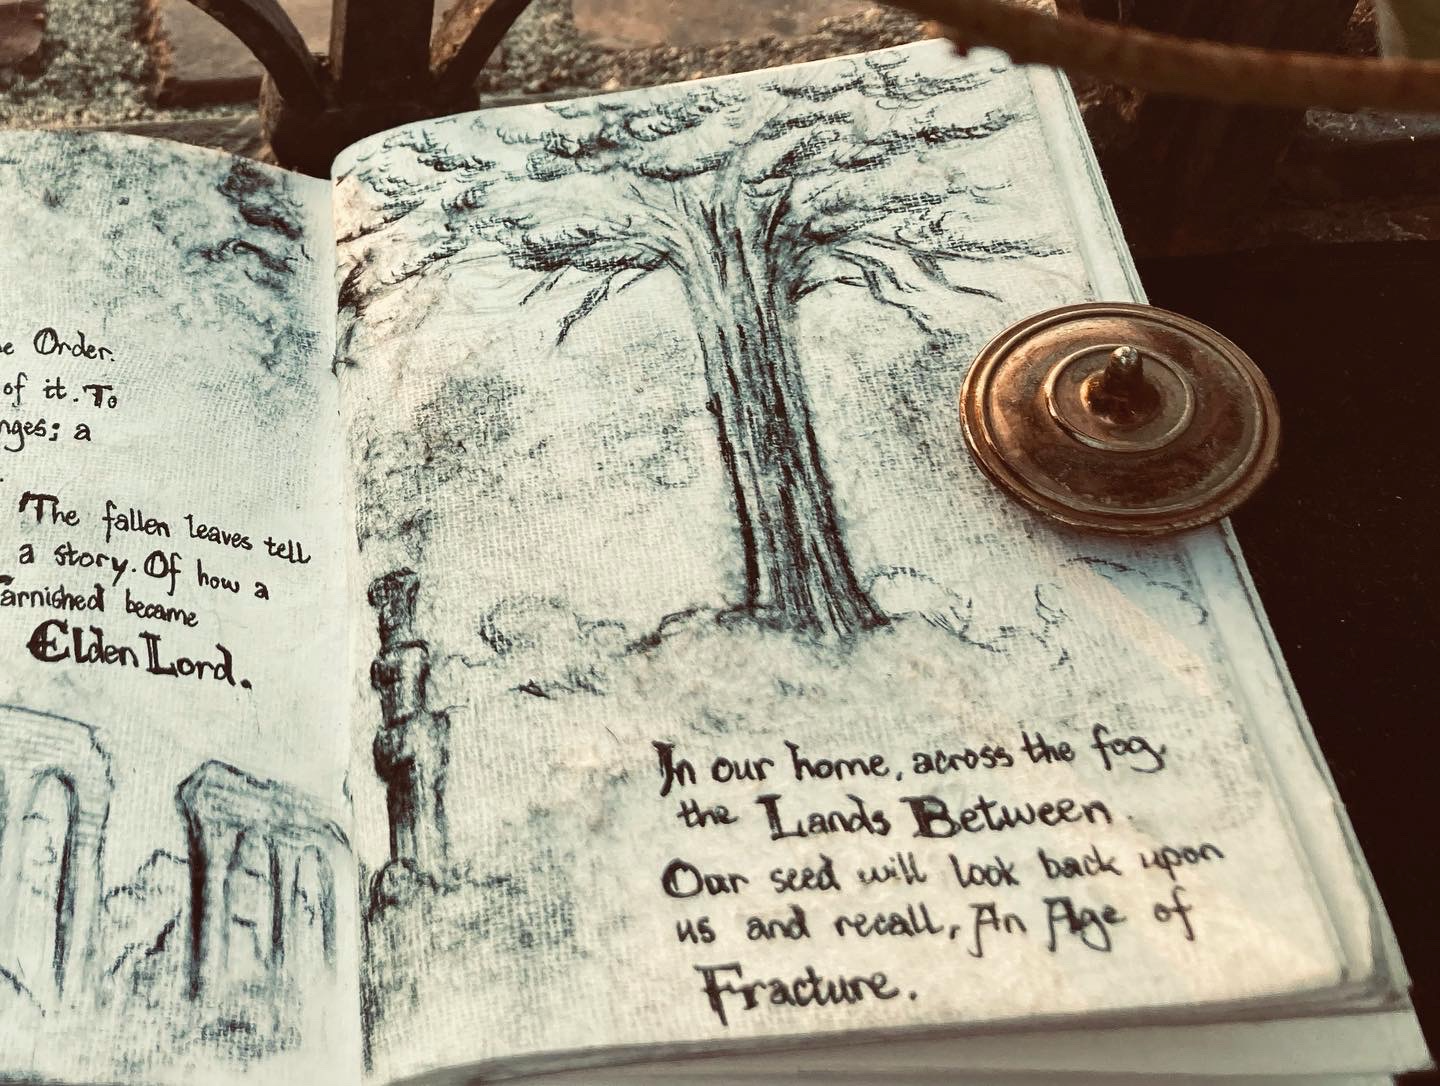 e Order.
of it. To
nges; a
The fallen leaves tell
a story. Of how a
arnished became
Elden Lord.
In our home, across the fog,
the Lands Between.
Our seed will look back upon
us and recall, An Age of
Fracture.